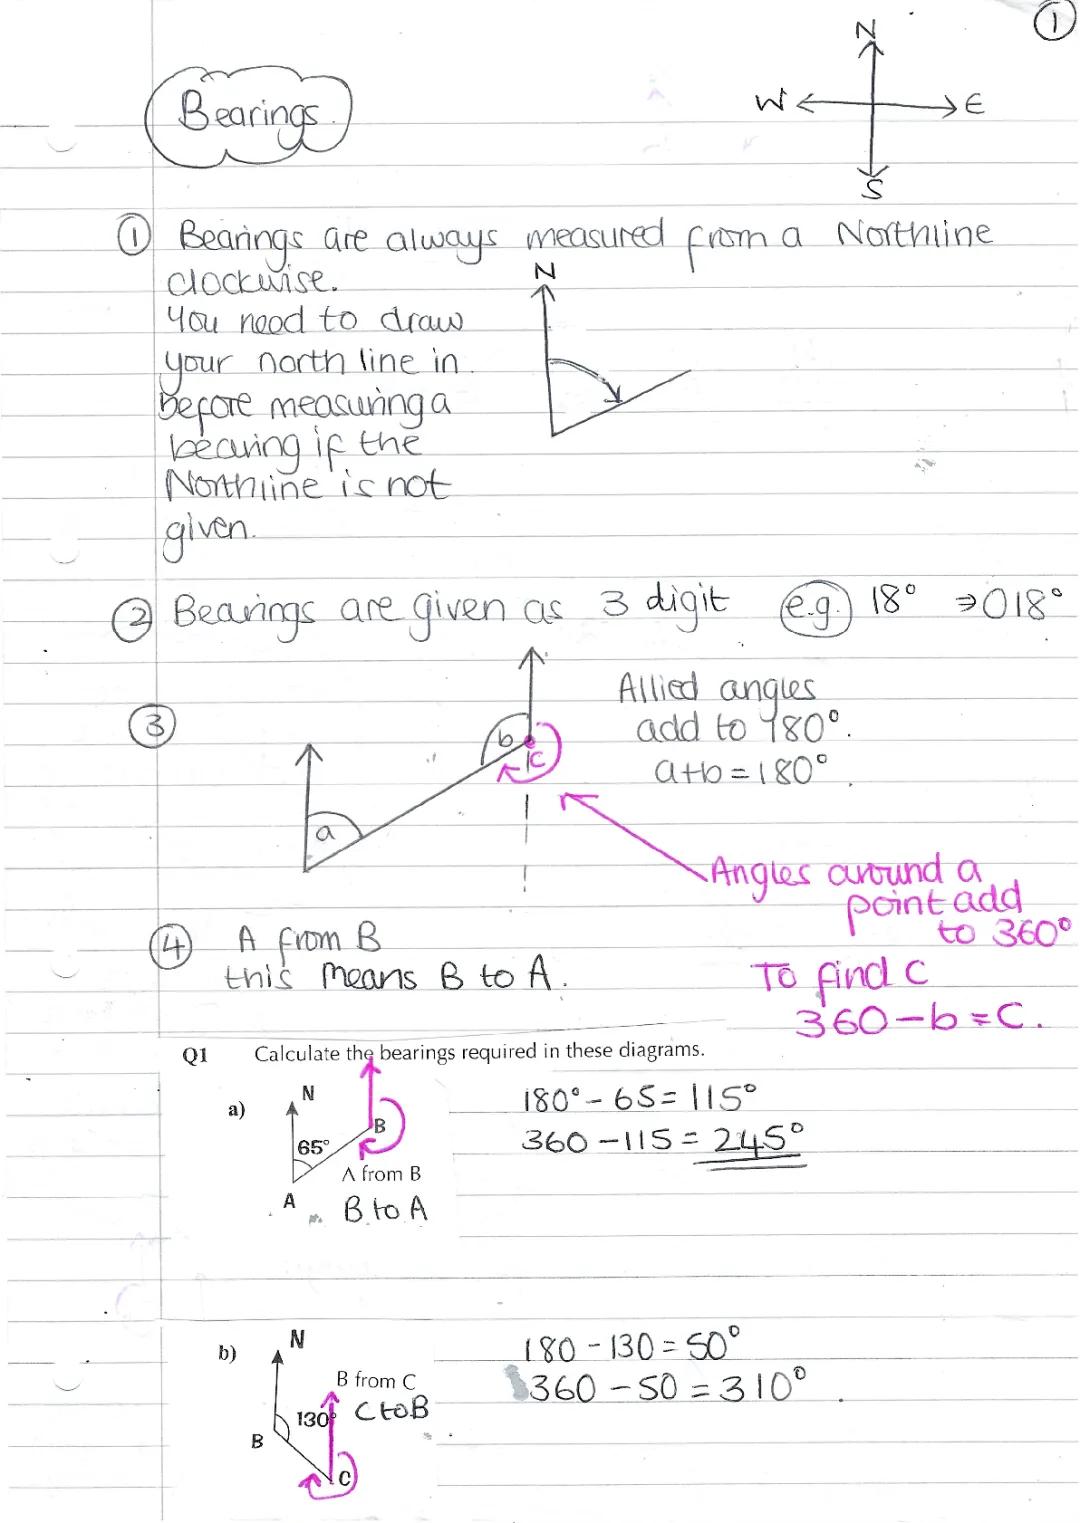 1
N
W E
S
Bearings.
1 Bearings are always measured from a Northline
clockwise.
N
You need to draw
your north line in
before measuring a
bearing if the
Northline is not
given.
2 Bearings are given as 3 digit e.g. 18° ⇒ 018°
3
Allied angles
add to 180°.
a+b = 180°
b
c
a
Angles around a
point add
to 360°
4 A from B
this means B to A.
To find c
360 - b = c.
Q1 Calculate the bearings required in these diagrams.
a)
N
B
65°
A from B
A
B to A
180° - 65 = 115°
360 - 115 = 245°
b)
N
B from C
C to B
130°
B
C
180 - 130 = 50°
360 - 50 = 310°